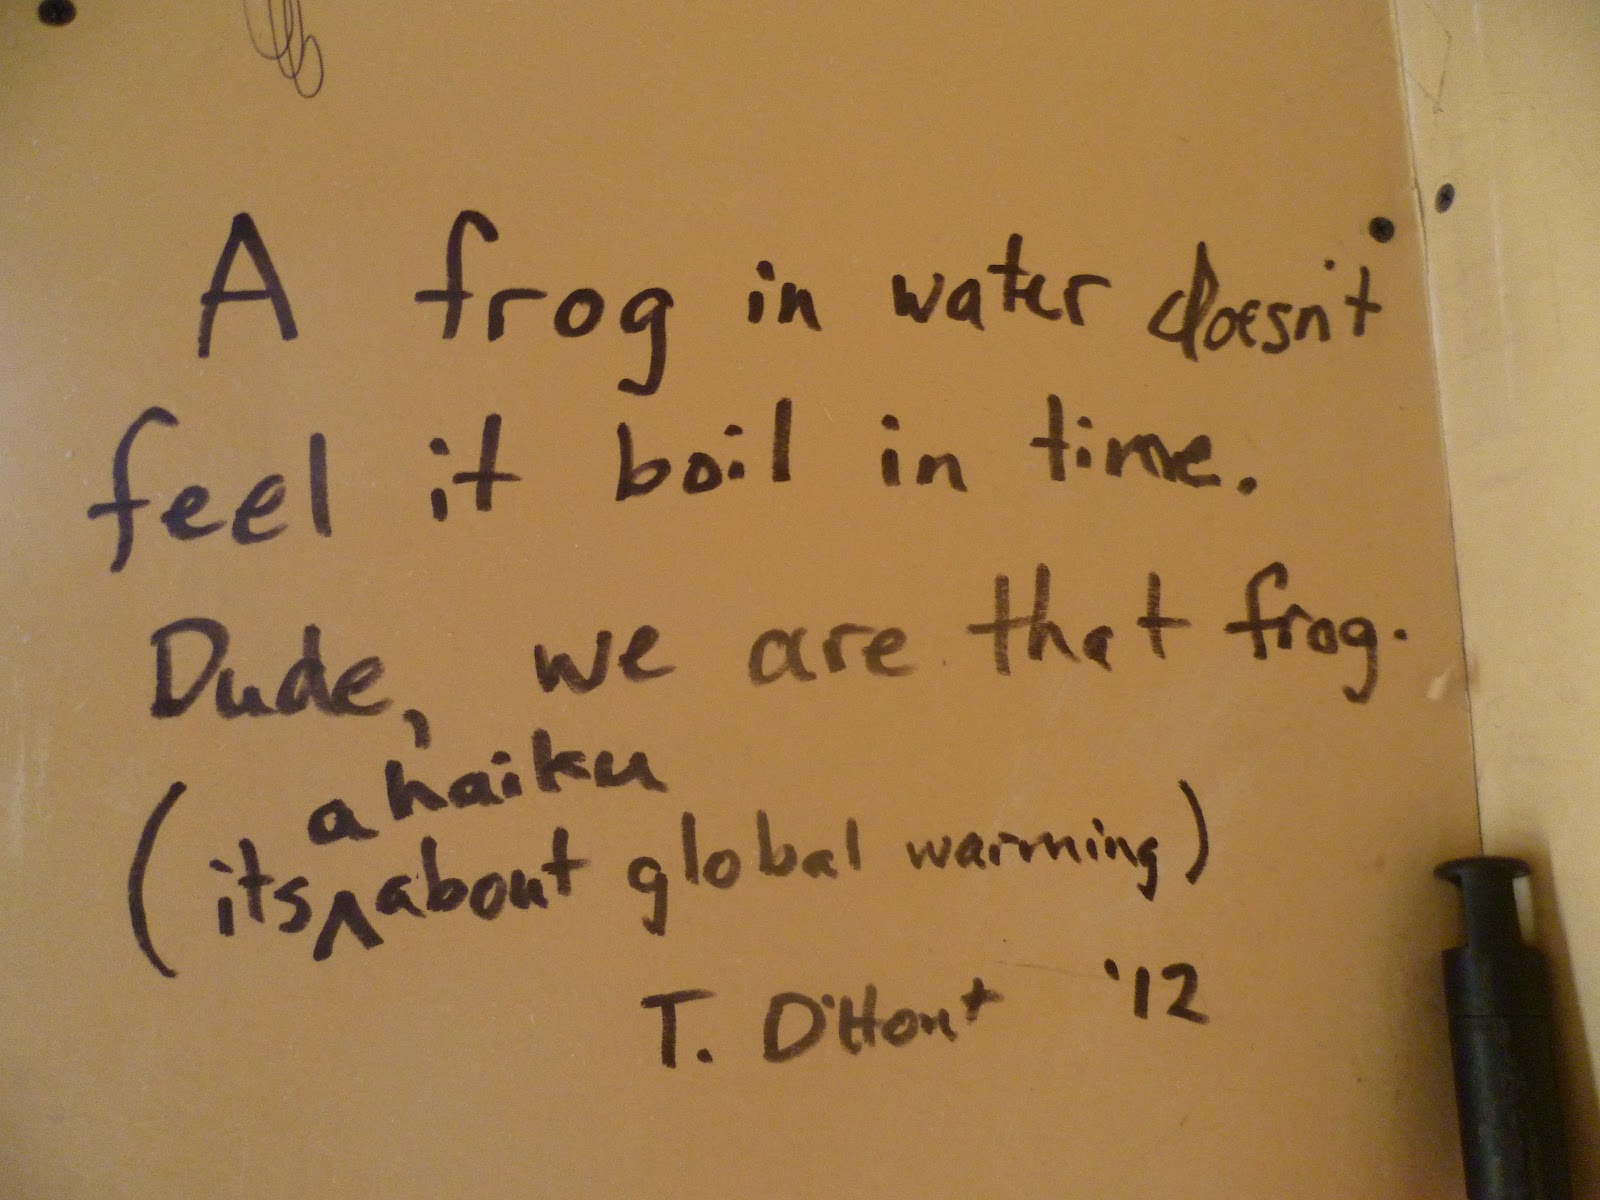 A frog in water doesn't
feel it boil in time.
Dude, we are that frog.
a haiku
(its ^ about global warming)
T. D'Hont '12